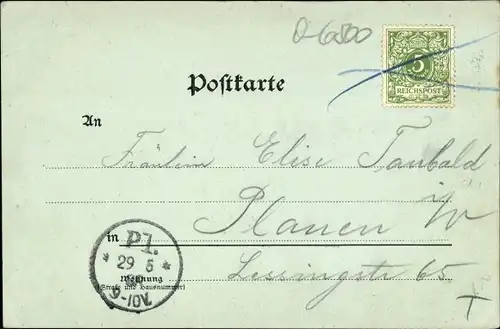 O-6800
5
REICHSPOST
Postkarte
An
Fräulein Elise Taubald
Plauen i/V
in
Pl.
* 29 5 *
9-10V.
Wohnung
(Straße und Hausnummer)
Lessingstr 65